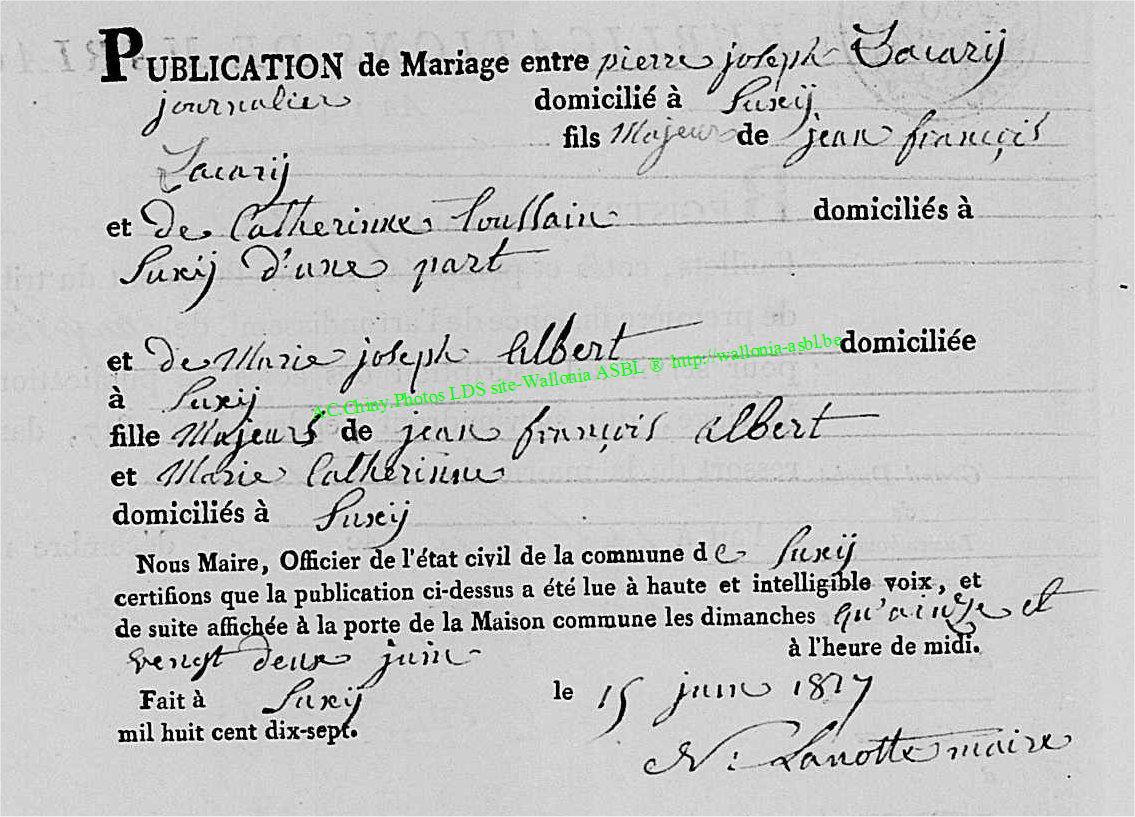 PUBLICATION de Mariage entre pierre joseph Zacarij
journalier domicilié à Suxij
fils Majeur de jean françois
Zacarij
et de Catherinne toussain domiciliés à
Suxij d'une part
et de Marie joseph albert domiciliée
à Suxij
fille Majeurs de jean françois albert
et Marie Catherinne
domiciliés à Suxij
Nous Maire, Officier de l'état civil de la commune de Suxij
certifions que la publication ci-dessus a été lue à haute et intelligible voix, et
de suite affichée à la porte de la Maison commune les dimanches qu'ainze et
vengt deux juin à l'heure de midi.
Fait à Suxij le 15 juin 1817
mil huit cent dix-sept.
N: Lanotte maire
A.C.Chiny.Photos LDS site-Wallonia ASBL ® http://wallonia-asbl.be